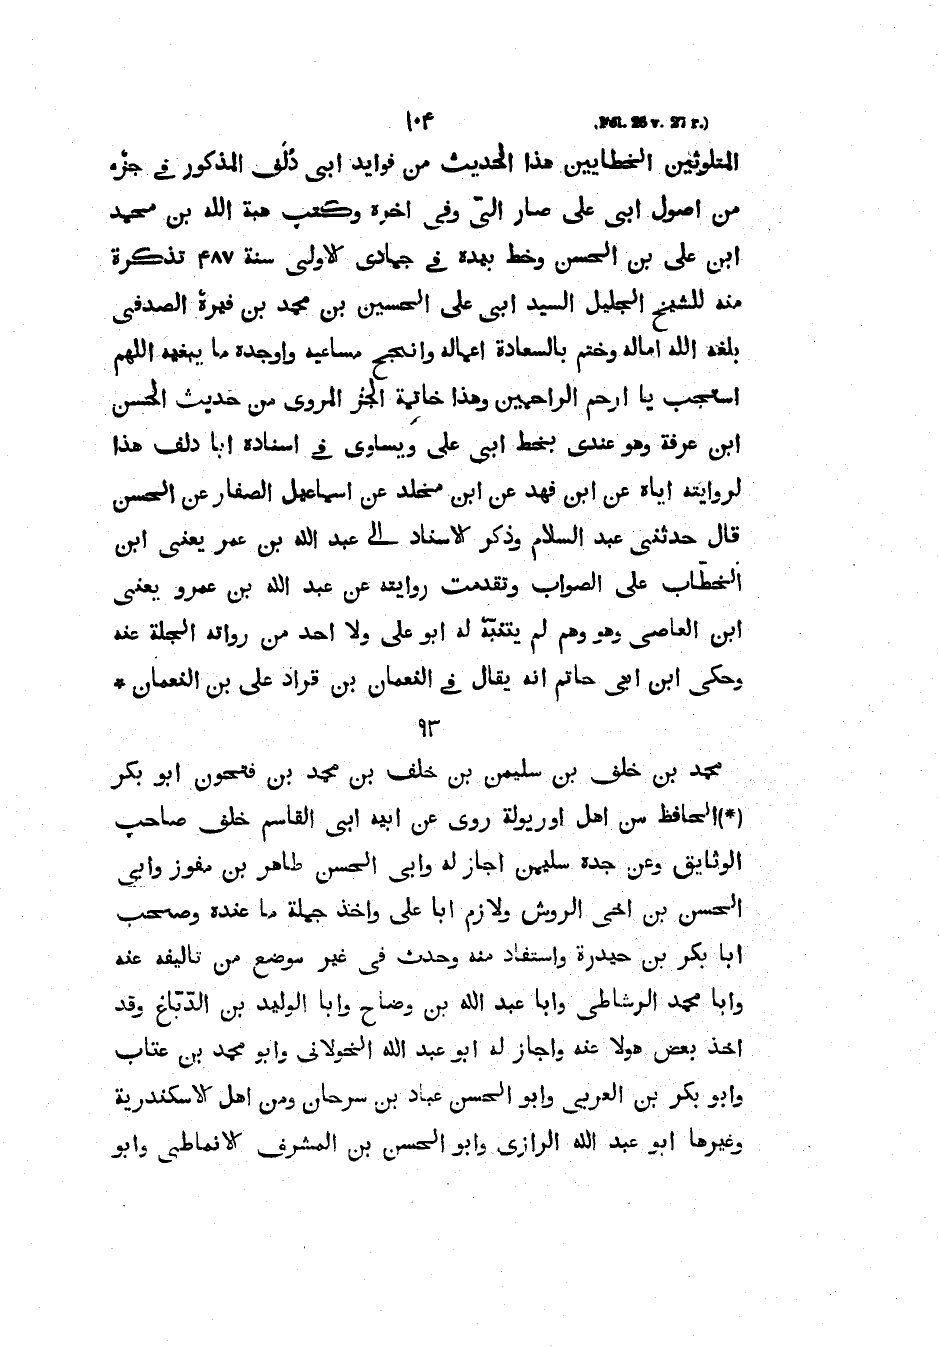 (Fol. 26 v. 27 r.) ١٠۴
المتلوثين الخطايين هذا الحديث من فوايد ابى دُلَف المذكور فى جزء
من اصول ابى على صار الىّ وفى اخره وكتب هبة الله بن محمد
ابن على بن الحسن وخط بيده فى جمادى الاولى سنة ۴٨٧ تذكرة
منه للشيخ الجليل السيد ابى على الحسين بن محمد بن فيرة الصدفى
بلغه الله اماله وختم بالسعادة اعماله وانجح مساعيه واوجده ما يبغيه اللهم
استجب يا ارحم الراحمين وهذا خاتمة الجزء المروى من حديث الحسن
ابن عرفة وهو عندى بخط ابى على ويساوى فى اسناده ابا دلف هذا
لروايته اياه عن ابن فهد عن ابن مخلد عن اسماعيل الصفار عن الحسن
قال حدثنى عبد السلام وذكر الاسناد الى عبد الله بن عمر يعنى ابن
الخطّاب على الصواب وتقدمت روايته عن عبد الله بن عمرو يعنى
ابن العاصى وهو وهم لم يتنبّه له ابو على ولا احد من رواته الجلة عنه
وحكى ابن ابى حاتم انه يقال فى النعمان بن قراد على بن النعمان *
٩٣
محمد بن خلف بن سليمن بن خلف بن محمد بن فتحون ابو بكر
(*)الحافظ من اهل اوريولة روى عن ابيه ابى القاسم خلف صاحب
الوثايق وعن جده سليمن اجاز له وابى الحسن طاهر بن مفوز وابى
الحسن بن اخى الروش ولازم ابا على واخذ جملة ما عنده وصحب
ابا بكر بن حيدرة واستفاد منه وحدث فى غير موضع من تاليفه عنه
وابا محمد الرشاطى وابا عبد الله بن وضاح وابا الوليد بن الدّبّاغ وقد
اخذ بعض هولا عنه واجاز له ابو عبد الله الخولانى وابو محمد بن عتاب
وابو بكر بن العربى وابو الحسن عباد بن سرحان ومن اهل الاسكندرية
وغيرها ابو عبد الله الرازى وابو الحسن بن المشرف الانماطى وابو